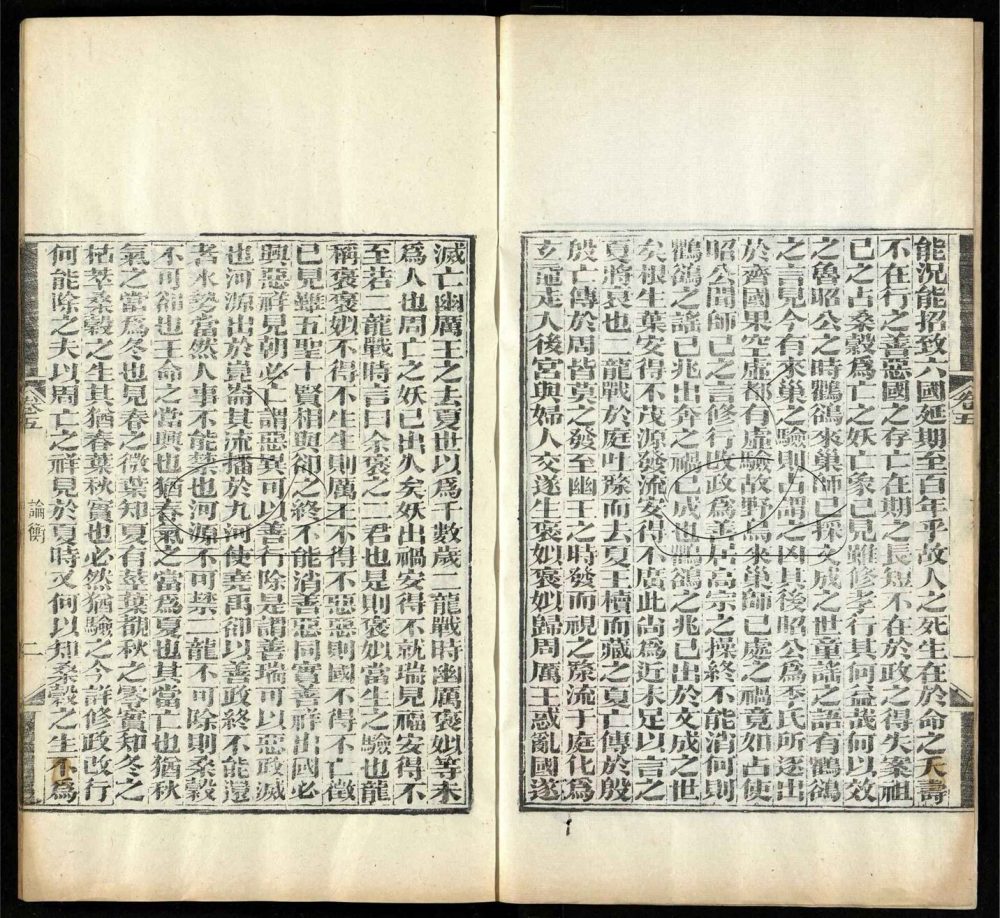 能況能招致六國延期至百年乎故人之死生在於命之夭壽
不在行之善惡國之存亡在期之長短不在於政之得失案祖
已之占桑穀爲亡之妖亡象已見雖修孝行其何益哉何以效
之魯昭公之時鸜鵒來巢師已採文成之世童謠之語有鸜鵒
之言見今有來巢之驗則占謂之凶其後昭公爲季氏所逐出
於齊國果空虛都有虛驗故野鳥來巢師已處之禍竟如占使
昭公聞師已之言修行改政爲善居高宗之操終不能消何則
鸜鵒之謠已兆出奔之禍已成也鸜鵒之兆已出於文成之世
矣根生葉安得不茂源發流安得不廣此尚爲近未足以言之
夏將衰也二龍戰於庭吐漦而去夏王櫝而藏之夏亡傳於殷
殷亡傳於周皆莫之發至幽王之時發而視之漦流于庭化爲
玄黿走入後宮與婦人交遂生褒姒褒姒歸周厲王惑亂國遂
滅亡幽厲王之去夏世以爲千數歲二龍戰時幽厲褒姒等未
爲人也周亡之妖已出久矣妖出禍安得不就瑞見福安得不
至若二龍戰時言曰余褒之二君也是則褒姒當生之驗也龍
稱褒褒姒不得不生生則厲王不得不惡惡則國不得不亡徵
已見雖五聖十賢相與卻之終不能消善惡同實善祥出國必
興惡祥見朝必亡謂惡異可以善行除是謂善瑞可以惡政滅
也河源出於崑崙其流播於九河使堯禹卻以善政終不能還
者水勢當然人事不能禁也河源不可禁二龍不可除則桑穀
不可卻也王命之當興也猶春氣之當爲夏也其當亡也猶秋
氣之當爲冬也見春之微葉知夏有莖葉覩秋之零實知冬之
枯萃桑穀之生其猶春葉秋實也必然猶驗之今詳修政改行
何能除之夫以周亡之祥見於夏時又何以知桑穀之生不爲
卷五
卷五
論衡
二